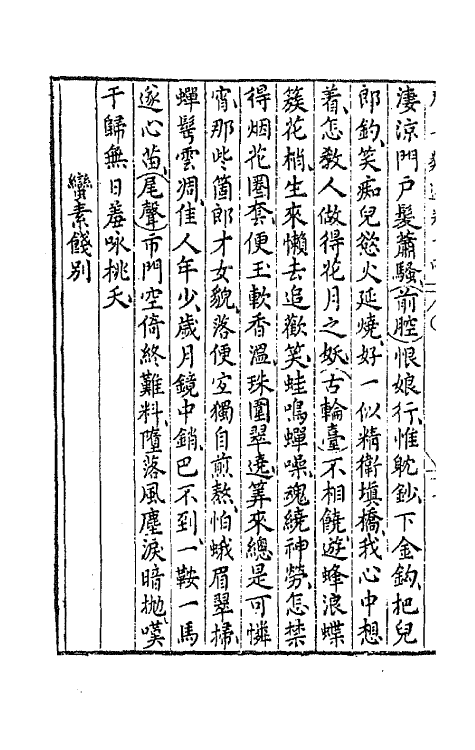 淒涼門戶鬢蕭騷（前腔）恨娘行惟躭鈔下金鈎把兒
郎釣笑痴兒慾火延燒好一似精衛塡橋我心中想
着怎教人做得花月之妖（古輪臺）不相饒遊蜂浪蝶
簇花梢生來懶去追歡笑蛙鳴蟬噪魂繞神勞怎禁
得烟花圈套便玉軟香溫珠圍翠遶筭來總是可憐
宵那些箇郎才女貌落便宜獨自煎熬怕蛾眉翠掃
蟬鬢雲凋佳人年少歲月鏡中銷巴不到一鞍一馬
遂心苗（尾聲）市門空倚終難料墮落風塵淚暗拋嘆
于歸無日羞咏桃夭
蠻素餞別